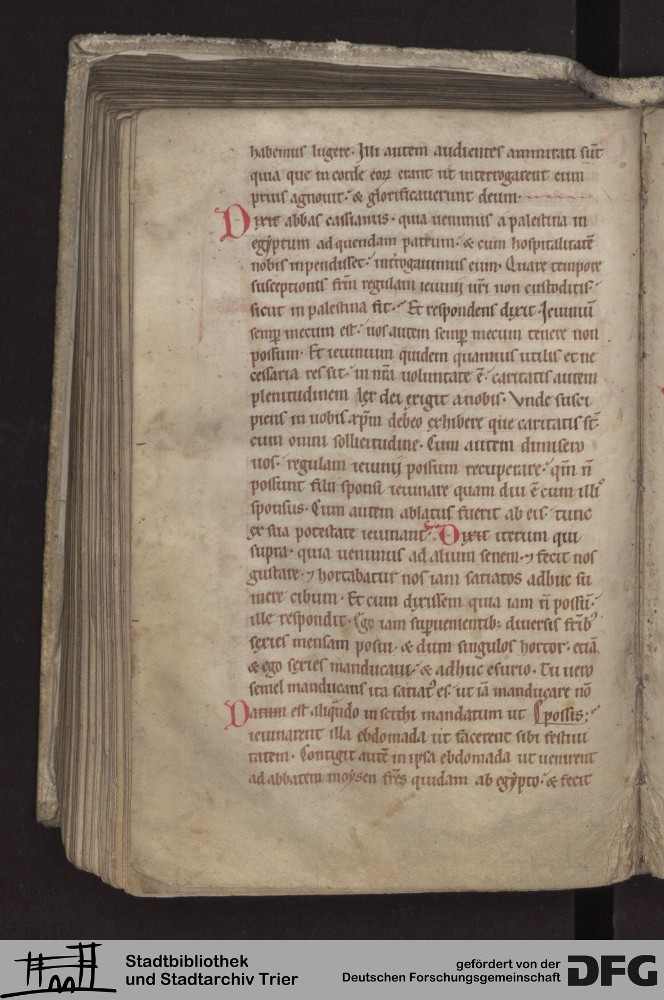 habemus lugere. Illi autem audientes ammirati sūt
quia que in corde eoꝝ erant ut interrogarent eum
prius agnouit. & glorificauerunt deum.
Dixit abbas cassianus. quia uenimus a palestina in
egẏptum ad quendam patrum. & cum hospitalitatē
nobis inpendisset. interogauimus eum. Quare tempore
susceptionis frm̄ regulam ieiunij ur̄i non custoditis.
sicut in palestina fit. Et respondens dixit. Ieiuniū
semꝑ mecum est. uos autem semꝑ mecum tenere non
possum. Et ieiunium quidem quamuis utilis et ne
cessaria res sit. in nr̄a uoluntate ē. caritatis autem
plenitudinem lex dei exigit a nobis. Vnde susci
piens in uobis xp̄m debeo exhibere que caritatis st̄
cum omni sollicitudine. Cum autem dimisero
uos. regulam ieiunij possum recuperare. qm̄ n̄
possunt filii sponsi ieiunare quam diu ē cum illiꝰ
sponsus. Cum autem ablatus fuerit ab eis. tunc
ex sua potestate ieiunant. Dixit iterum qui
supra. quia uenimus ad alium senem. ⁊ fecit nos
gustare. ⁊ hortabatur nos iam satiatos adhuc su
mere cibum. Et cum dixissem quia iam n̄ possū.
ille respondit. Ego iam suꝑuenientib; diuersis fr̄ibꝰ
sexies mensam posui. & dum singulos hortor. etiā
& ego sexies manducaui. & adhuc esurio. Tu uero
semel manducans ita satiatꝰ es. ut iā manducare nō
Datum est aliqn̄do in scithi mandatum ut possis;
ieiunarent illa ebdomada ut facerent sibi festiui
tatem. Contigit autē in ipsa ebdomada ut uenirent
ad abbatem moẏsen fr̄es quidam ab egẏpto. & fecit
Stadtbibliothek
und Stadtarchiv Trier
gefördert von der
Deutschen Forschungsgemeinschaft
DFG